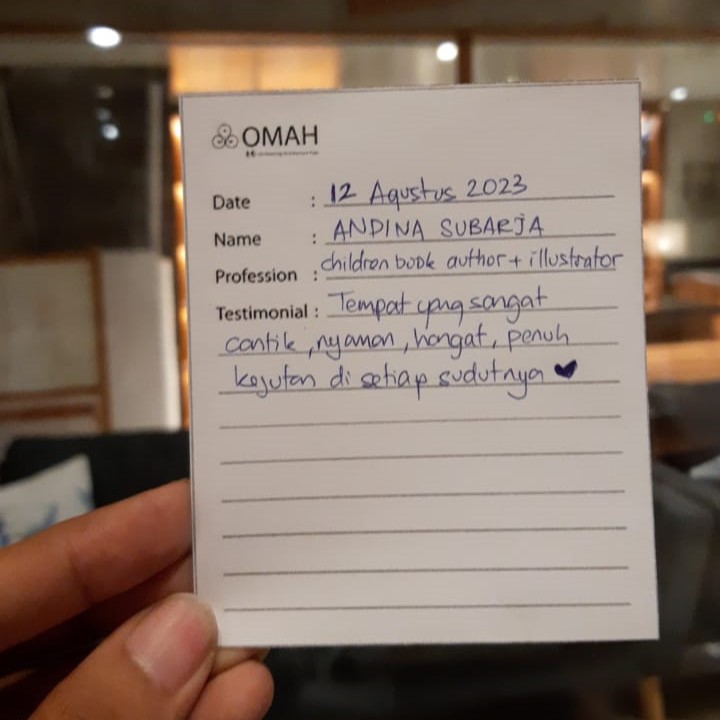 OMAH
Date : 12 Agustus 2023
Name : ANDINA SUBARJA
Profession : children book author + illustrator
Testimonial : Tempat yang sangat
cantik, nyaman, hangat, penuh
kejutan di setiap sudutnya ♥